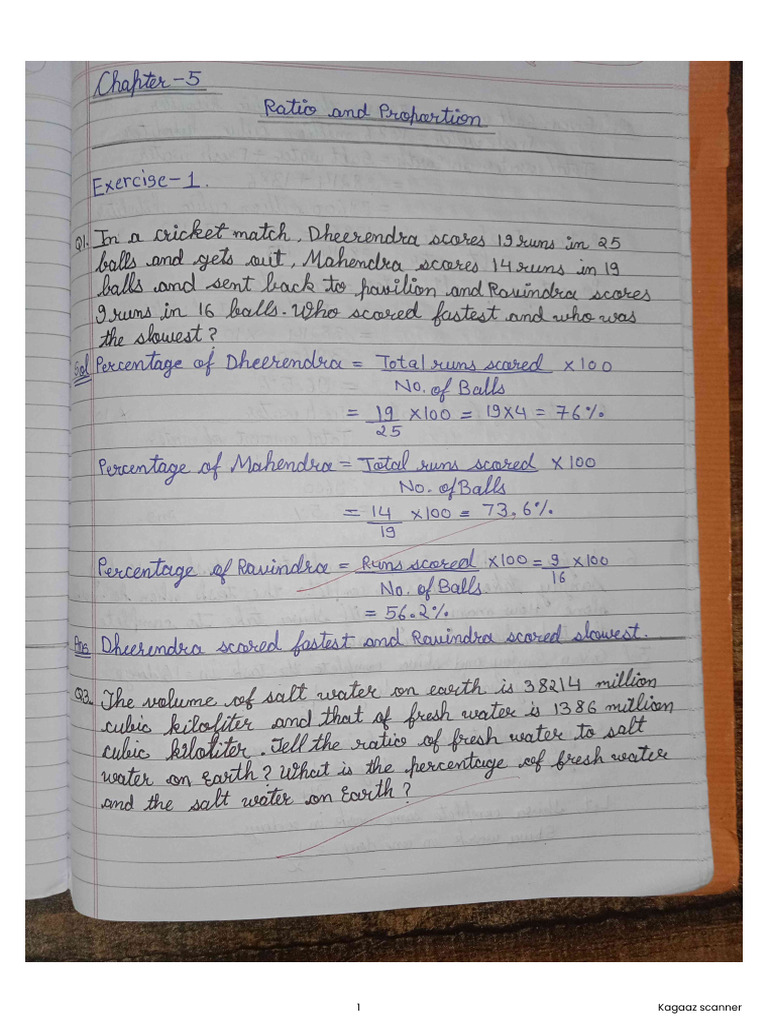 Chapter-5
Ratio and Proportion
Exercise-1.
Q1. In a cricket match, Dheerendra scores 19 runs in 25
balls and gets out, Mahendra scores 14 runs in 19
balls and sent back to pavilion and Ravindra scores
9 runs in 16 balls. Who scored fastest and who was
the slowest?
Sol Percentage of Dheerendra = Total runs scored / No. of Balls × 100
= 19/25 × 100 = 19×4 = 76%
Percentage of Mahendra = Total runs scored / No. of Balls × 100
= 14/19 × 100 = 73,6%
Percentage of Ravindra = Runs scored / No. of Balls × 100 = 9/16 × 100
= 56.2%
Ans Dheerendra scored fastest and Ravindra scored slowest.
Q3. The volume of salt water on earth is 38214 million
cubic kiloliter and that of fresh water is 1386 million
cubic kiloliter. Tell the ratio of fresh water to salt
water on Earth? What is the percentage of fresh water
and the salt water on Earth?
1
Kagaaz scanner